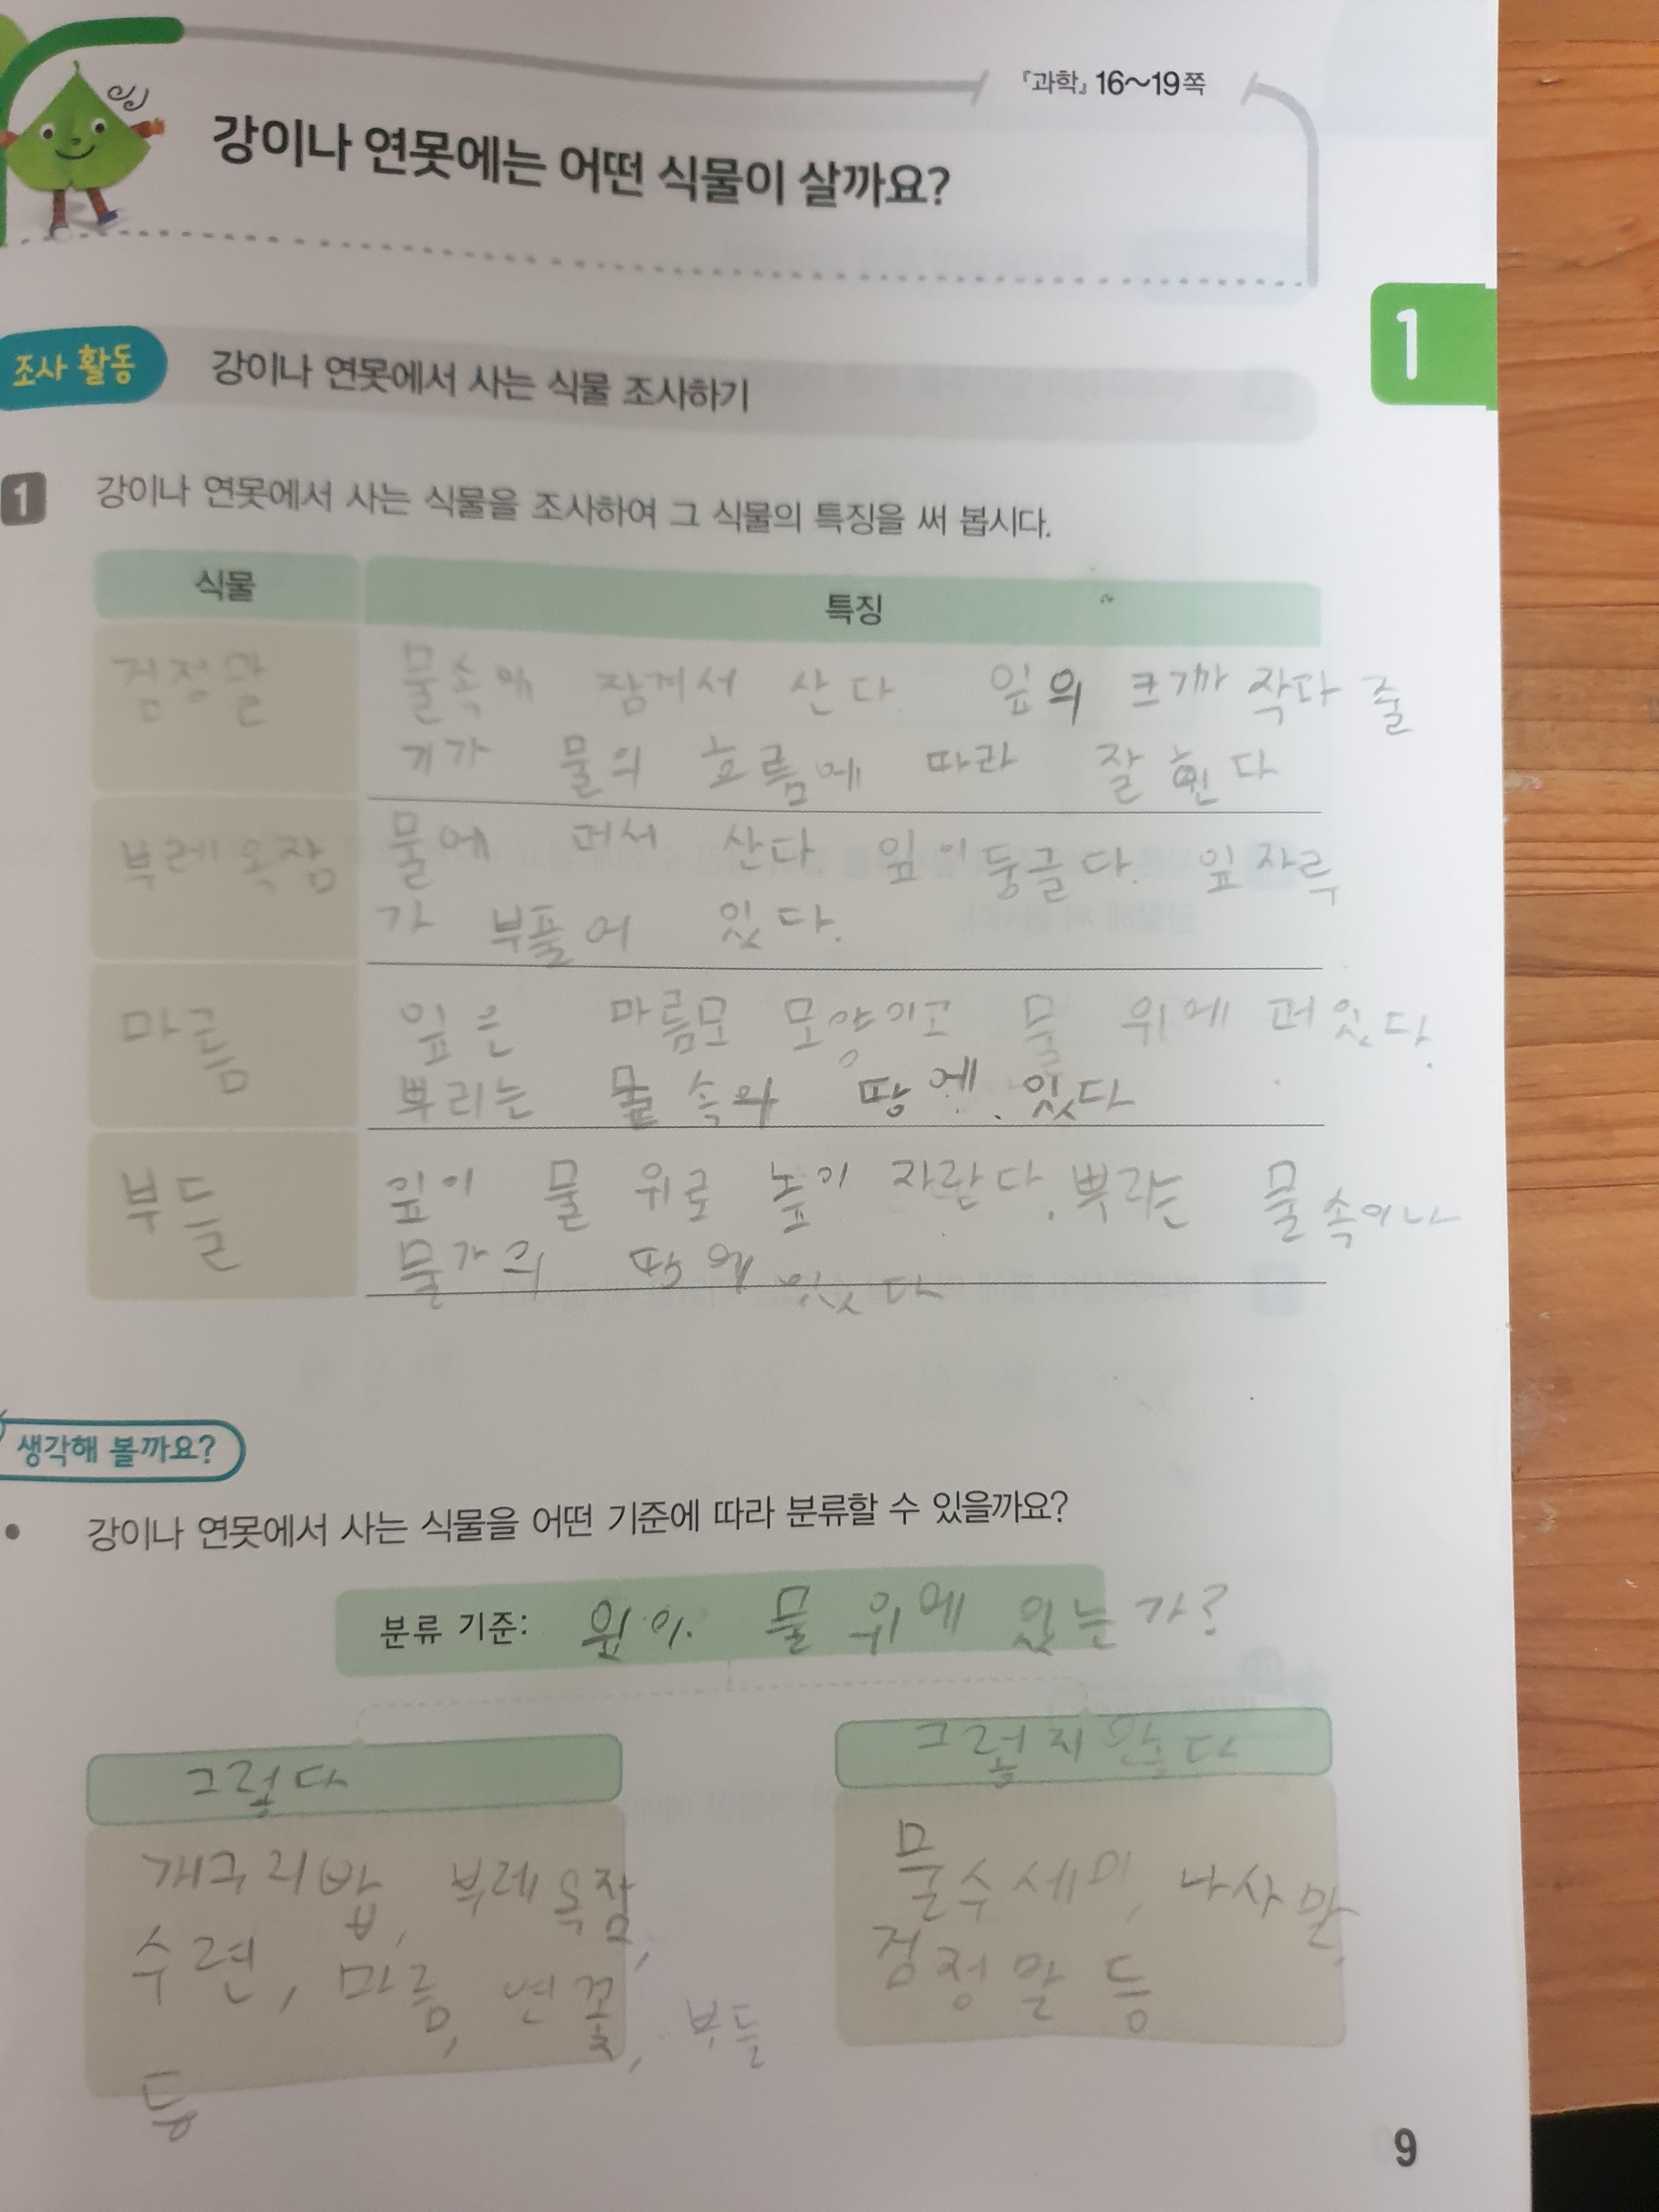 『과학』 16~19쪽
강이나 연못에는 어떤 식물이 살까요?
1
조사 활동 강이나 연못에서 사는 식물 조사하기
1 강이나 연못에서 사는 식물을 조사하여 그 식물의 특징을 써 봅시다.
식물 특징
검정말 물속에 잠겨서 산다 잎의 크기가 작다 줄
기가 물의 흐름에 따라 잘 휜다
부레옥잠 물에 떠서 산다 잎이 둥글다. 잎자루
가 부풀어 있다.
마름 잎은 마름모 모양이고 물 위에 떠있다.
뿌리는 물속의 땅에 있다
부들 잎이 물 위로 높이 자란다. 뿌리는 물속이나
물가의 땅에 있다
생각해 볼까요?
• 강이나 연못에서 사는 식물을 어떤 기준에 따라 분류할 수 있을까요?
분류 기준: 잎이 물 위에 있는가?
그렇다
개구리밥, 부레옥잠,
수련, 마름, 연꽃, 부들
등
그렇지 않다
물수세미, 나사말,
검정말 등
9